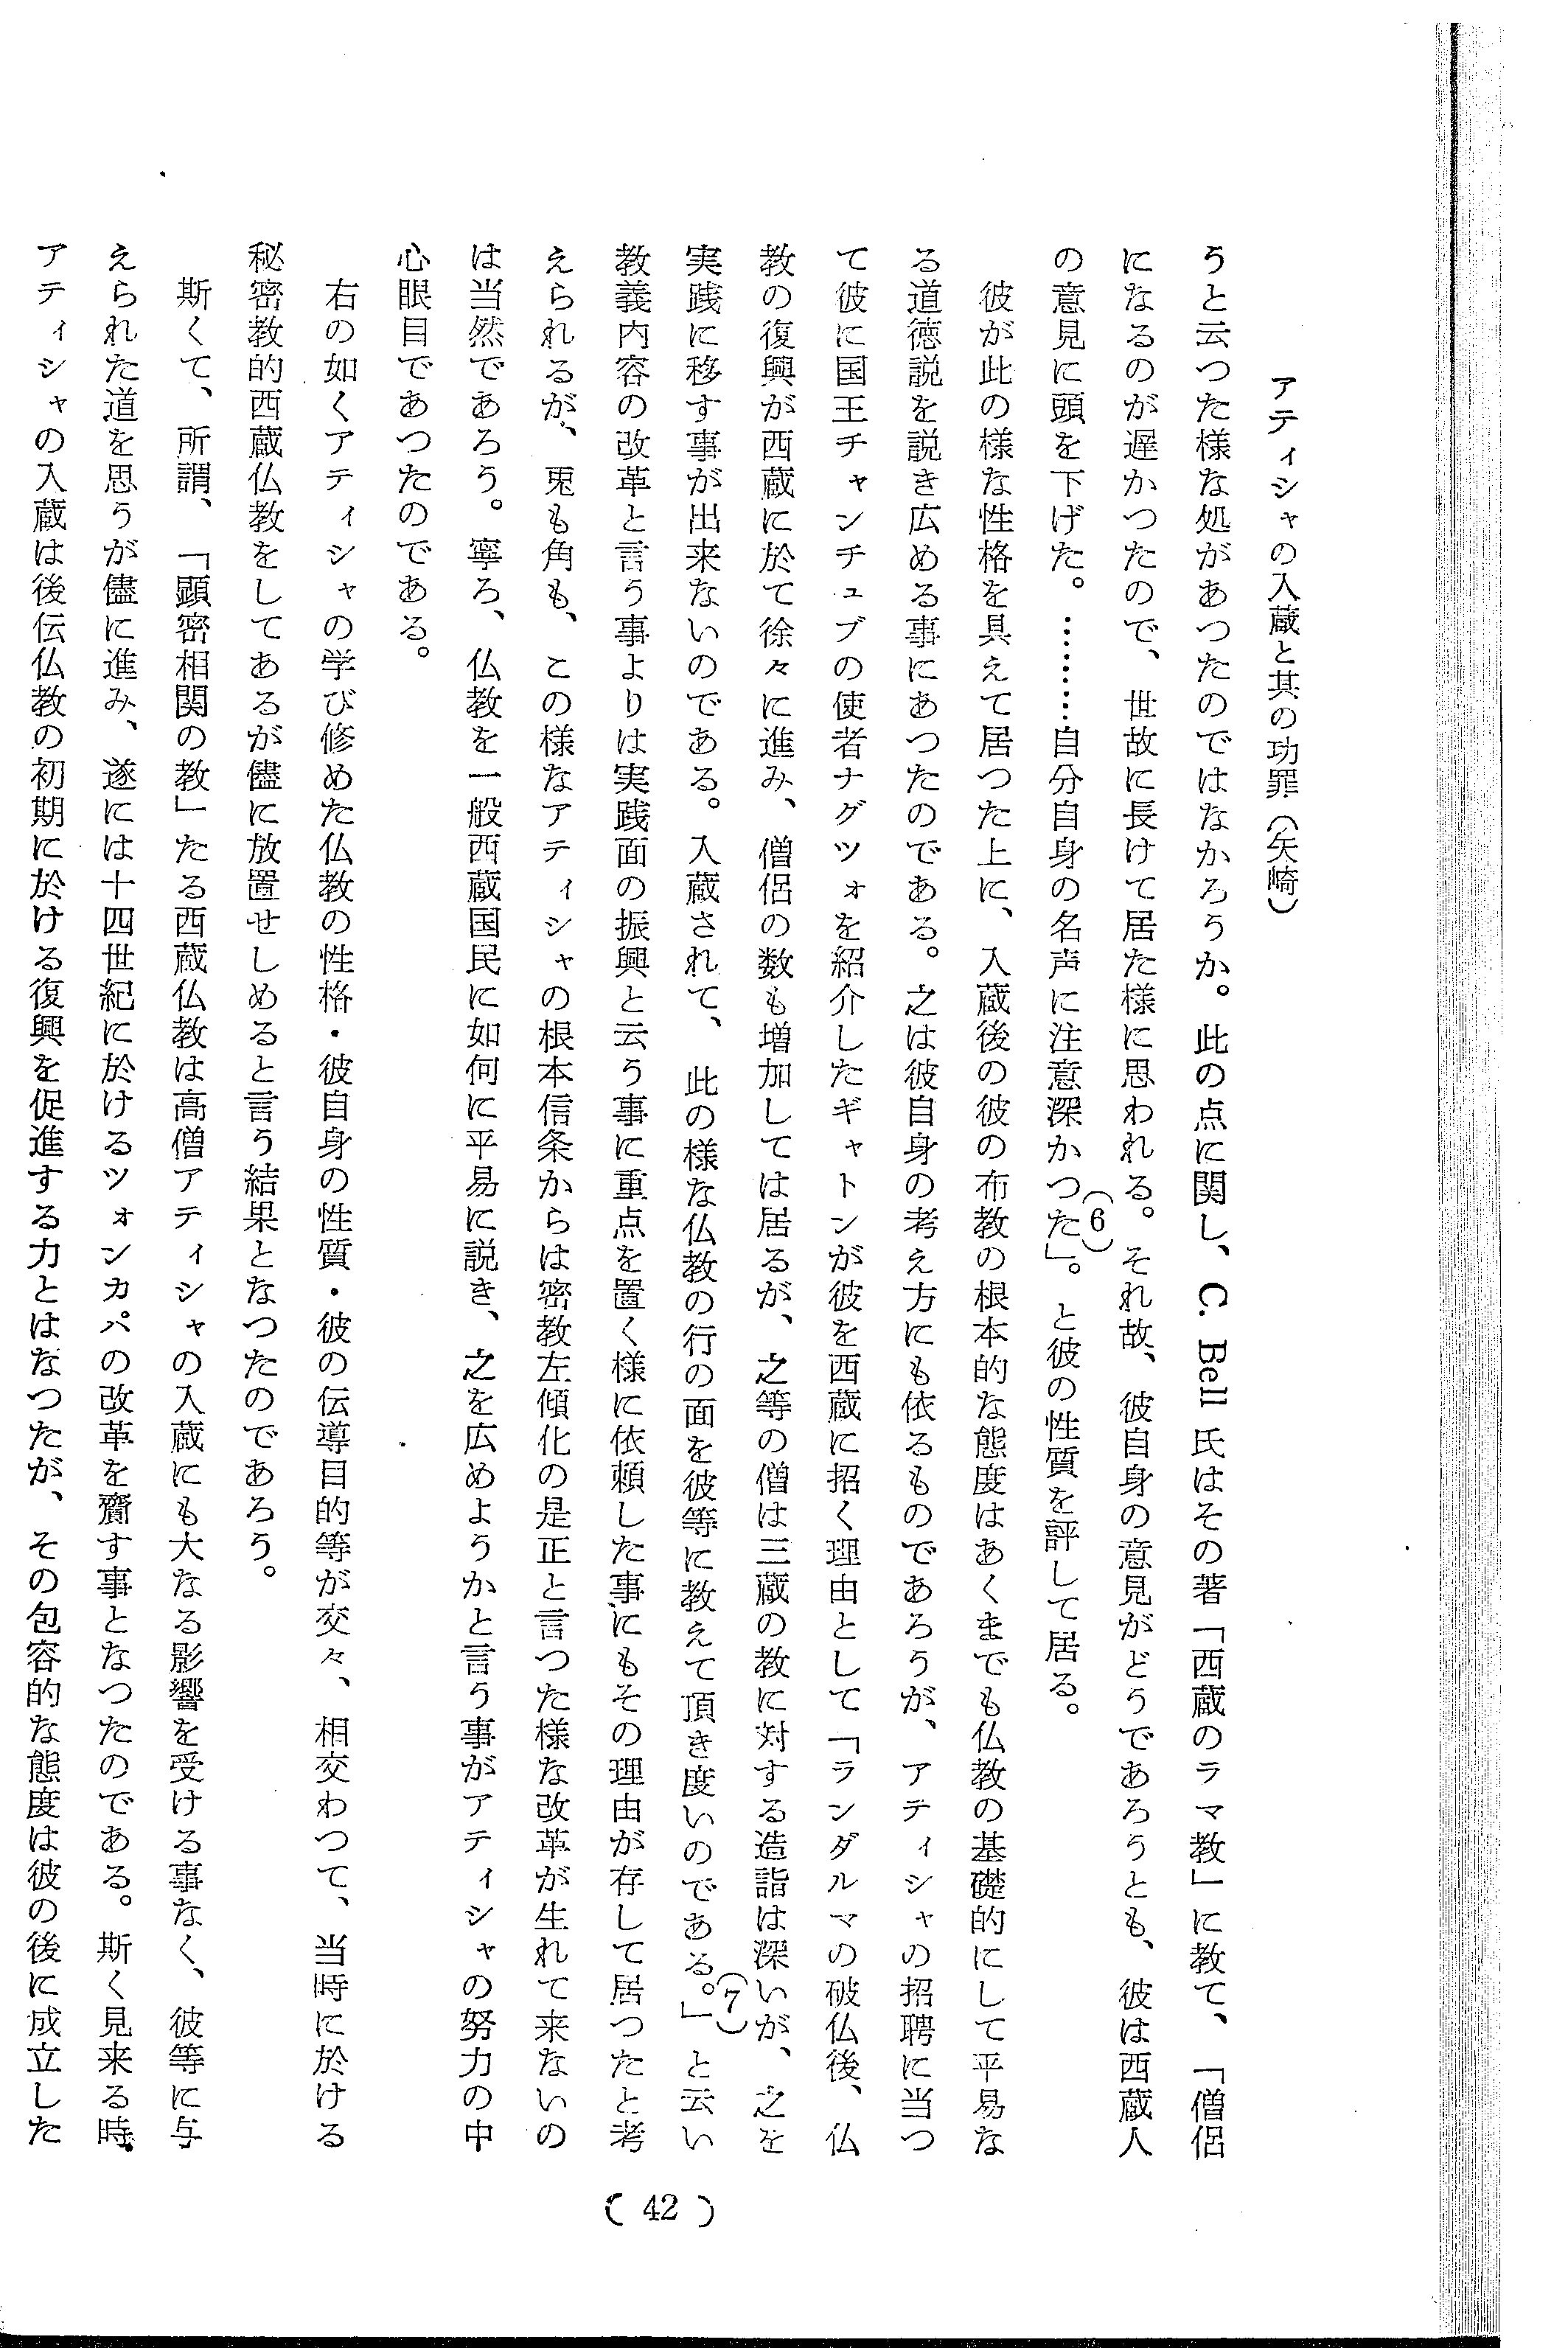 アティシャの入蔵と其の功罪(矢崎)
うと云つた様な処があつたのではなかろうか。此の点に関し、C. Bell 氏はその著「西蔵のラマ教」に教て、「僧侶
になるのが遅かつたので、世故に長けて居た様に思われる。それ故、彼自身の意見がどうであろうとも、彼は西蔵人
の意見に頭を下げた。………自分自身の名声に注意深かつた」。(6)と彼の性質を評して居る。
彼が此の様な性格を具えて居つた上に、入蔵後の彼の布教の根本的な態度はあくまでも仏教の基礎的にして平易な
る道徳説を説き広める事にあつたのである。之は彼自身の考え方にも依るものであろうが、アティシャの招聘に当つ
て彼に国王チャンチュブの使者ナグツォを紹介したギャトンが彼を西蔵に招く理由として「ランダルマの破仏後、仏
教の復興が西蔵に於て徐々に進み、僧侶の数も増加しては居るが、之等の僧は三蔵の教に対する造詣は深いが、之を
実践に移す事が出来ないのである。入蔵されて、此の様な仏教の行の面を彼等に教えて頂き度いのである。」(7)と云い
教義内容の改革と言う事よりは実践面の振興と云う事に重点を置く様に依頼した事にもその理由が存して居つたと考
えられるが、兎も角も、この様なアティシャの根本信条からは密教左傾化の是正と言つた様な改革が生れて来ないの
は当然であろう。寧ろ、仏教を一般西蔵国民に如何に平易に説き、之を広めようかと言う事がアティシャの努力の中
心眼目であつたのである。
右の如くアティシャの学び修めた仏教の性格・彼自身の性質・彼の伝導目的等が交々、相交わつて、当時に於ける
秘密教的西蔵仏教をしてあるが儘に放置せしめると言う結果となつたのであろう。
斯くて、所謂、「顕密相関の教」たる西蔵仏教は高僧アティシャの入蔵にも大なる影響を受ける事なく、彼等に与
えられた道を思うが儘に進み、遂には十四世紀に於けるツォンカパの改革を齎す事となつたのである。斯く見来る時、
アティシャの入蔵は後伝仏教の初期に於ける復興を促進する力とはなつたが、その包容的な態度は彼の後に成立した
( 42 )